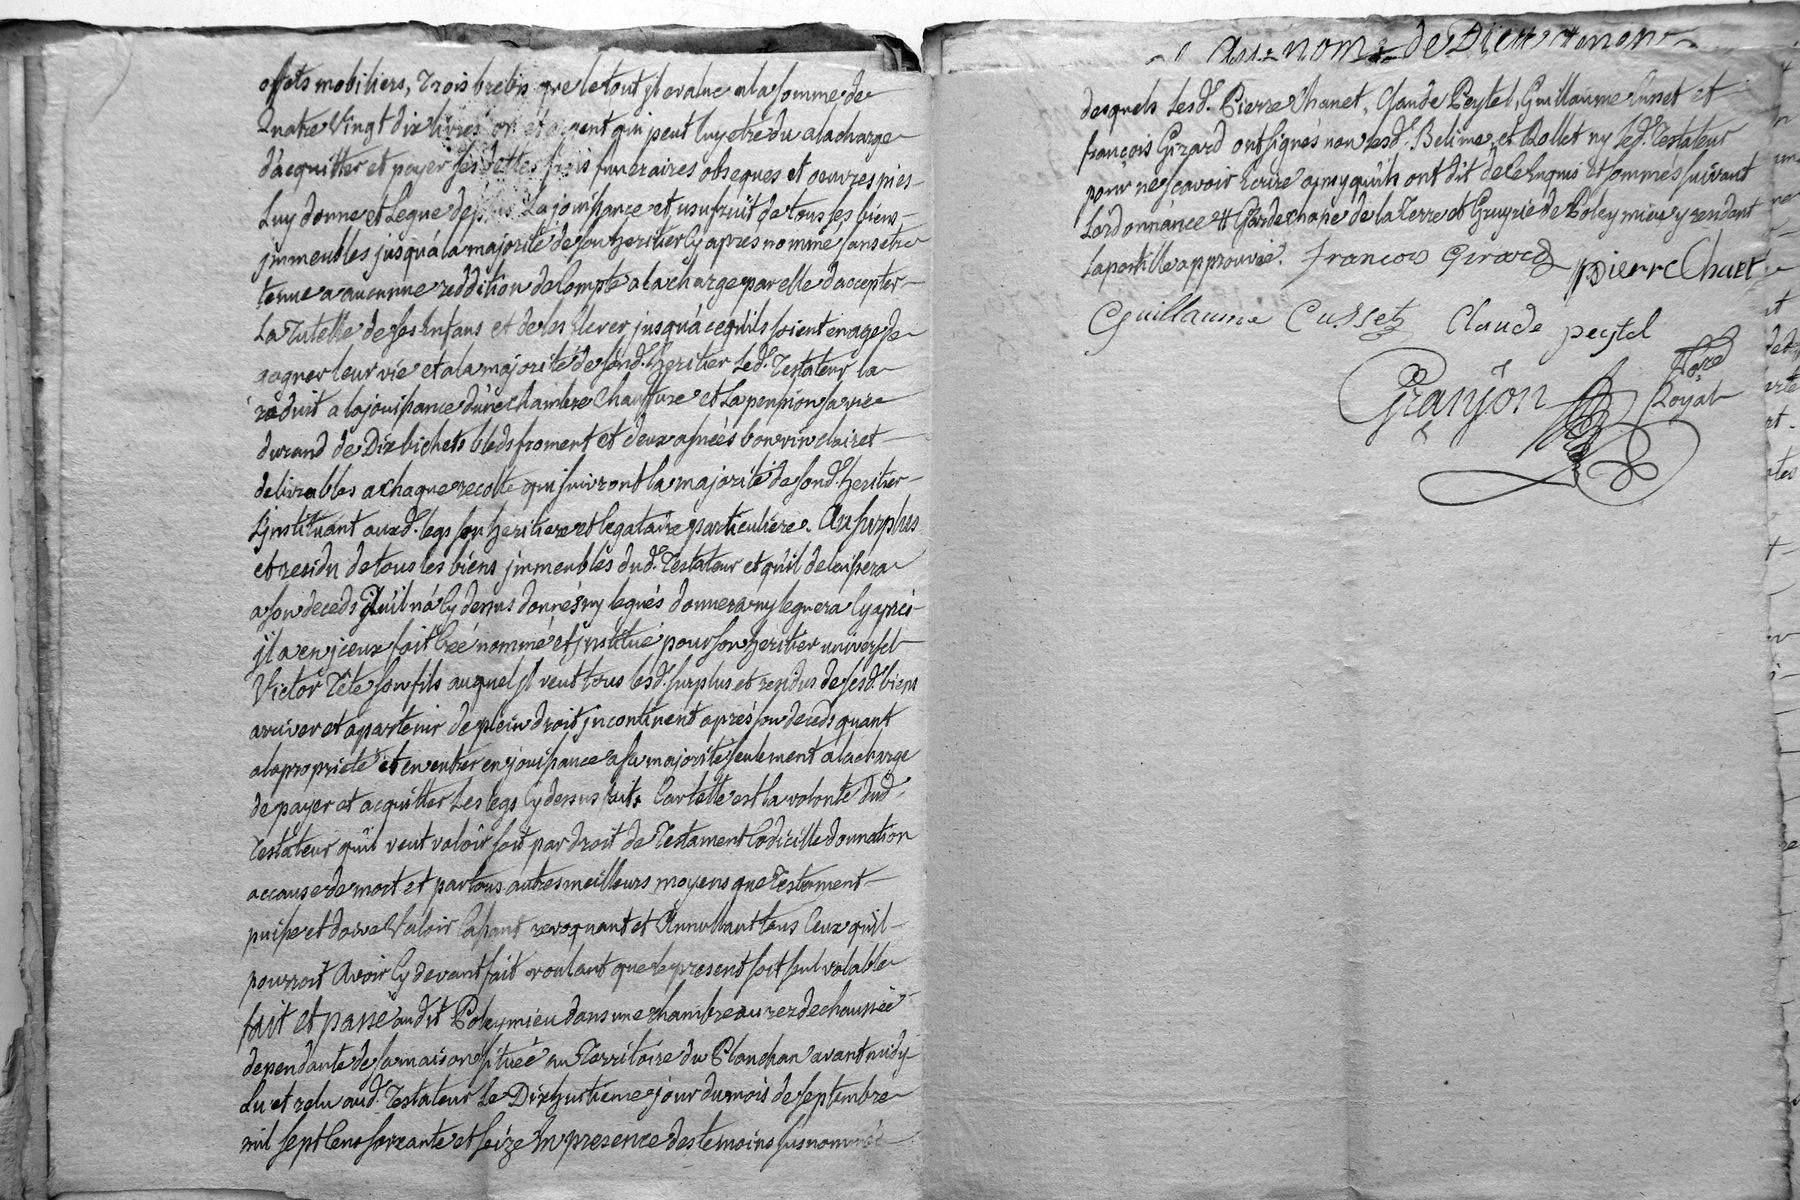 effets mobiliers, trois brebis que le tout jl evalue a la somme de
quatre vingt dix livres or et argent qui peut luy etre du a la charge
d'acquitter et payer ses dettes frais funeraires obseques et oeuvres pies
Luy donne et Legue de plus La jouissance et usufruit de tous ses biens
jmmeubles jusqu'a la majorité de son heritier cy apres nommé, sans etre
tenue a aucunne reddition de Compte a la charge par elle d'accepter
La Tutelle de ses Enfans et de les Elever jusqu'a ce qu'ils soient en age de
gagner leur vie et a la majorité de sond. heritier Led. Testateur la
reduit a la jouissance d'une chambre Chauffure et La pension sa vie
durand de Dix bichets bleds froment et deux asnées bon vin clairet
delivrables a chaque recolte qui suivront la majorité de sond. heritier
L'jnstituant auxd. legs son heritiere et legataire particuliere. Au surplus
et residu de tous les biens jmmeubles dud. Testateur et qu'il delaissera
a son deceds Qu'il n'a cy dessus donnés ny legués donnera ny leguera cy aprés
jl a en jceux fait créé nommé et jnstitué pour son heritier universel
Victor Tête son fils auquel jl veut tous lesd. surplus et residus de sesd. biens
arriver et apartenir de plein droit jncontinent aprés son deceds quant
a la proprieté et en entrer en jouissance a sa majorité seulement a la charge
de payer et acquitter Les legs cy dessus faits Car telle est la volonté dud.
Testateur qu'il veut valoir soit par droit de Testament Codicille donnation
a cause de mort et par tous autres meilleurs moyens que Testament
puisse et doive Valoir Cassant revoquant et Annullant tous Ceux qu'il
pourroit Avoir cy devant fait voulant que le present soit seul valable
fait et passé audit Poleymieu dans une chambre au rez de chaussée
dependante de sa maison située au Territoire du Planchan avant midy
Lu et relu aud. Testateur Le Dix huitieme jour du mois de septembre
mil sept Cens soixante et seize En presence des temoins susnommés
Au nom de Dieu amen
desquels Lesd. Pierre Chanet, Claude Peytel, Guillaume Cusset et
françois Girard ont signés non Lesd. Belime, et Rollet ny led. Testateur
pour ne sçavoir Ecrire ainsy qu'ils ont dit de ce Enquis et sommés suivant
L'ordonnance # Garde chasse de la Terre et Gruyrie de Poleymieu y rendant
La postille approuvée. Francois Girard Pierre Chanet
Guillaume Cusset Claude peytel
Granjon Nore
Royal